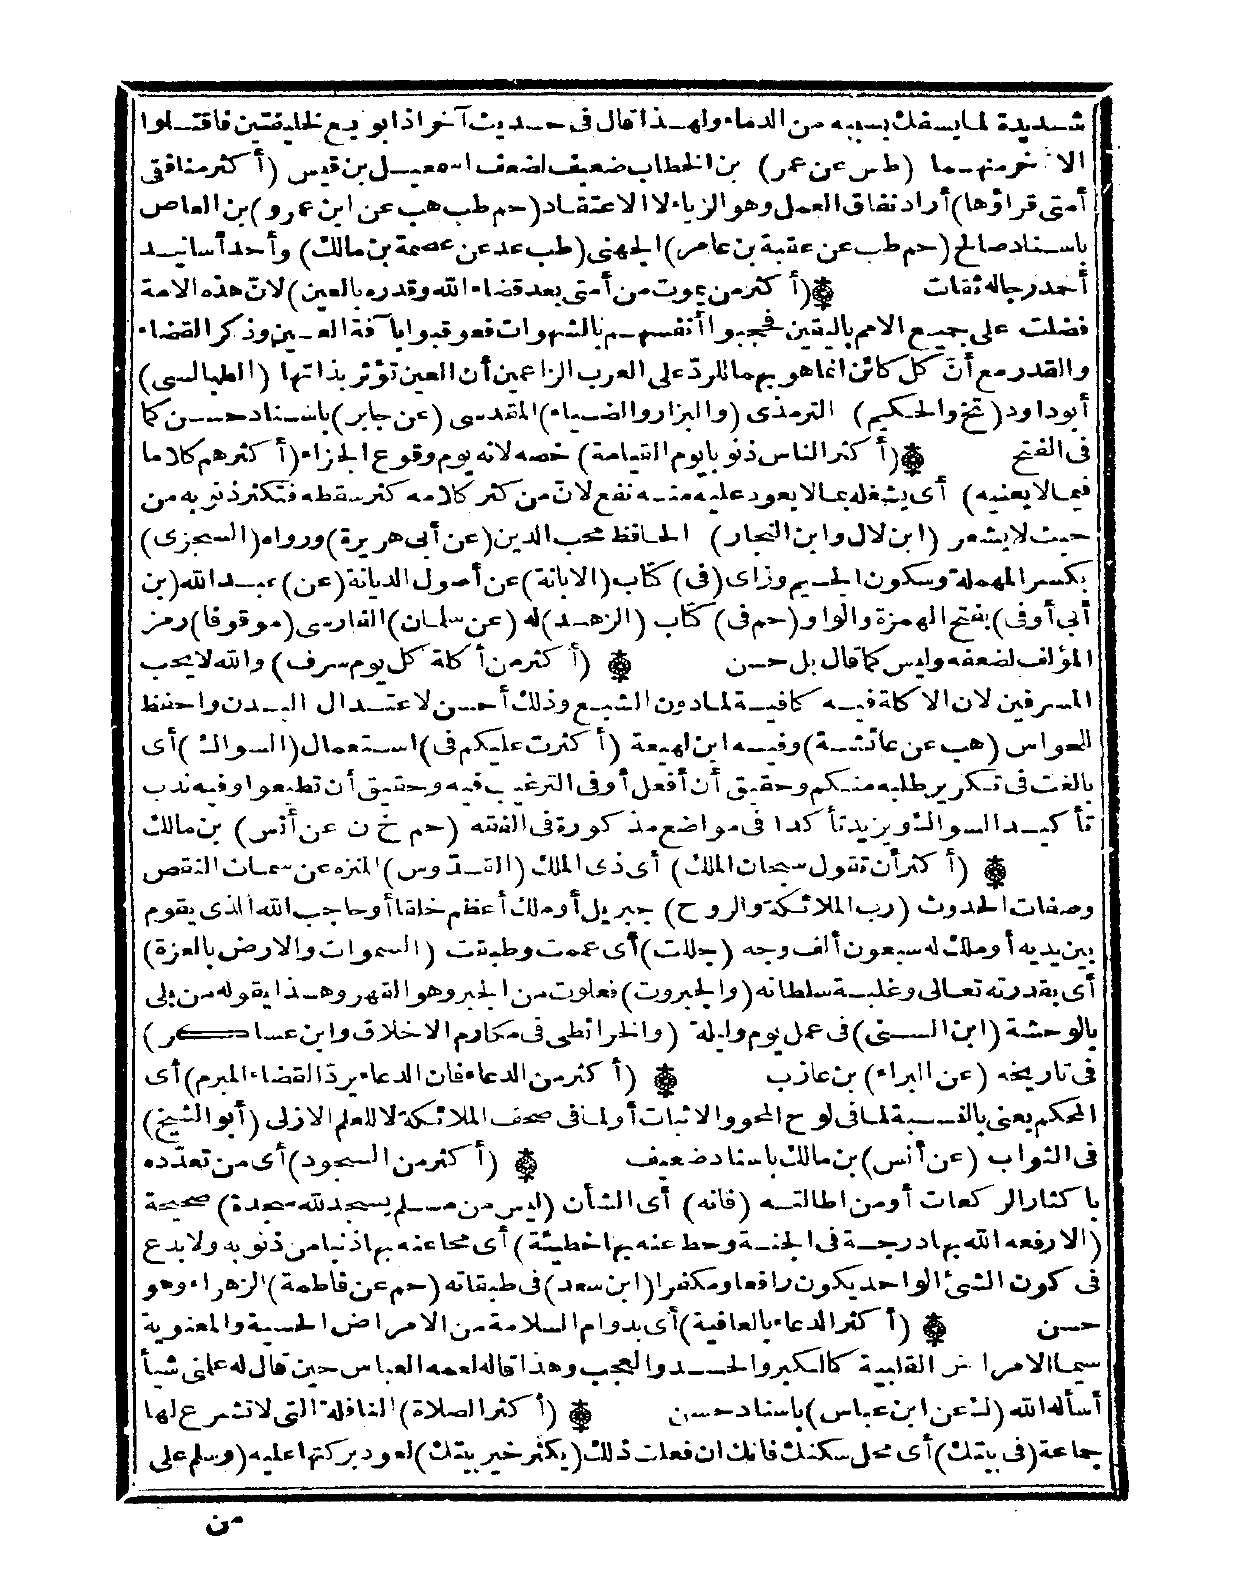 شديدة لما يسفك بسببه من الدماء ولهذا قال فى حديث آخر اذا بويع لخليفتين فاقتلوا
الآخر منهما (طس عن عمر) بن الخطاب ضعيف لضعف اسمعيل بن قيس (أكثر منافقى
أمتى قراؤها) أراد نفاق العمل وهو الرياء لا الاعتقاد (حم طب هب عن ابن عمرو) بن العاص
باسناد صالح (حم طب عن عقبة بن عامر) الجهنى (طب عد عن عصمة بن مالك) وأحد أسانيد
أحمد رجاله ثقات ۞ (أكثر من يموت من أمتى بعد قضاء الله وقدره بالعين) لانّ هذه الامة
فضلت على جميع الامم باليقين فحجبوا أنفسهم بالشهوات فعوقبوا بآفة العين وذكر القضاء
والقدر مع أنّ كل كائن انما هو بهما للردّ على العرب الزاعمين أن العين تؤثر بذاتها (الطيالسى)
أبو داود (تخ والحكيم) الترمذى (والبزار والضياء) المقدسى (عن جابر) باسناد حسن كما
فى الفتح ۞ (أكثر الناس ذنوبا يوم القيامة) خصه لانه يوم وقوع الجزاء (أكثرهم كلاما
فيما لا يعنيه) أى يشغله بما لا يعود عليه منه نفع لانّ من كثر كلامه كثر سقطه فتكثر ذنوبه من
حيث لا يشعر (ابن لال وابن النجار) الحافظ محب الدين (عن أبى هريرة) ورواه (السجزى)
بكسر المهملة وسكون الجيم وزاى (فى) كتاب (الابانة) عن أصول الديانة (عن) عبد الله (بن
أبى أوفى) بفتح الهمزة والواو (حم فى) كتاب (الزهد) له (عن سلمان) الفارسى (موقوفا) رمز
المؤلف لضعفه وليس كما قال بل حسن ۞ (أكثر من أكلة كل يوم سرف) والله لا يحب
المسرفين لان الاكلة فيه كافية لمادون الشبع وذلك أحسن لاعتدال البدن واحفظ
للحواس (هب عن عائشة) وفيه ابن لهيعة (أكثرت عليكم فى) استعمال (السواك) أى
بالغت فى تكرير طلبه منكم وحقيق أن أفعل أو فى الترغيب فيه وحقيق أن تطيعوا وفيه ندب
تأكيد السواك ويزيد تأكدا فى مواضع مذكورة فى الفقه (حم خ ن عن أنس) بن مالك
۞ (أكثر أن تقول سبحان الملك) أى ذى الملك (القدّوس) المنزه عن سمات النقص
وصفات الحدوث (رب الملائكة والروح) جبريل أو ملك أعظم خلقا أو حاجب الله الذى يقوم
بين يديه أو ملك له سبعون ألف وجه (جللت) أى عممت وطبقت (السموات والارض بالعزة)
أى بقدرته تعالى وغلبة سلطانه (والجبروت) فعلوت من الجبر وهو القهر وهذا يقوله من بلى
بالوحشة (ابن السنى) فى عمل يوم وليلة (والخرائطى فى مكارم الاخلاق وابن عساكر)
فى تاريخه (عن البراء) بن عازب ۞ (أكثر من الدعاء فان الدعاء يردّ القضاء المبرم) أى
المحكم يعنى بالنسبة لما فى لوح المحو والاثبات أو لما فى صحف الملائكة لا للعلم الازلى (أبو الشيخ)
فى الثواب (عن أنس) بن مالك باسناد ضعيف ۞ (أكثر من السجود) أى من تعدّده
باكثار الركعات أو من اطالته (فانه) أى الشأن (ليس من مسلم يسجد لله سجدة) صحيحة
(الا رفعه الله بها درجة فى الجنة وحط عنه بها خطيئة) أى محا عنه بها ذنبا من ذنوبه ولا بدع
فى كون الشئ الواحد يكون رافعا ومكفرا (ابن سعد) فى طبقاته (حم عن فاطمة) الزهراء وهو
حسن ۞ (أكثر الدعاء بالعافية) أى بدوام السلامة من الامراض الحسية والمعنوية
سيما الامراض القلبية كالكبر والحسد والعجب وهذا قاله لعمه العباس حين قال له علمنى شيأ
أسأله الله (ك عن ابن عباس) باسناد حسن ۞ (أكثر الصلاة) النافلة التى لا تشرع لها
جماعة (فى بيتك) أى محل سكنك فانك ان فعلت ذلك (يكثر خير بيتك) لعود بركتها عليه (وسلم على
من